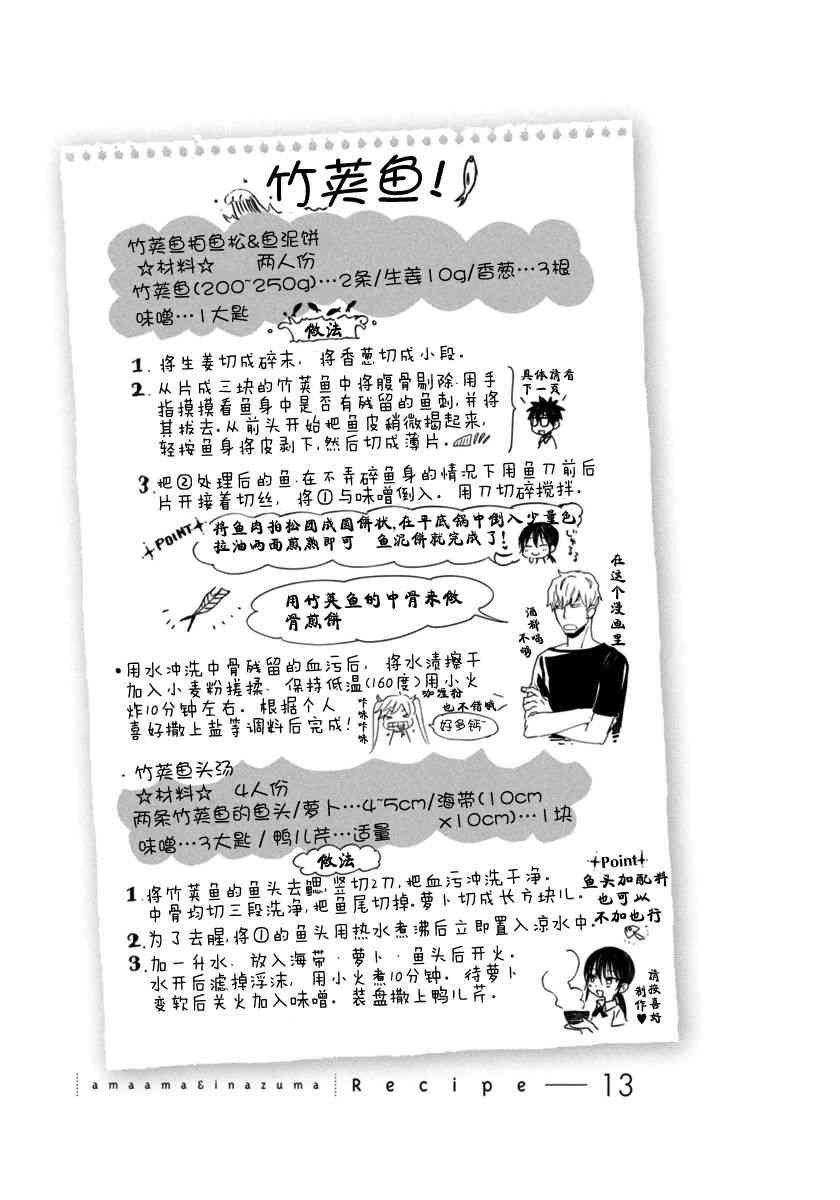 竹荚鱼!
竹荚鱼拍鱼松&鱼泥饼
☆材料☆ 两人份
竹荚鱼(200~250g)…2条/生姜10g/香葱…3根
味噌…1大匙
做法
1. 将生姜切成碎末, 将香葱切成小段。
2. 从片成三块的竹荚鱼中将腹骨剔除.用手
指摸摸看鱼身中是否有残留的鱼刺,并将
其拔去。从前头开始把鱼皮稍微揭起来,
轻按鱼身将皮剥下,然后切成薄片。
具体请看
下一页
3. 把②处理后的鱼.在不弄碎鱼身的情况下用鱼刀前后
片开接着切丝, 将①与味噌倒入。 用刀切碎搅拌.
POINT
将鱼肉拍松团成圆饼状,在平底锅中倒入少量色
拉油两面煎熟即可 鱼泥饼就完成了!
用竹荚鱼的中骨来做
骨煎饼
在这个漫画里
酒都喝
不够
•用水冲洗中骨残留的血污后, 将水渍擦干
加入小麦粉搓揉. 保持低温(160度)用小火
炸10分钟左右。根据个人
喜好撒上盐等调料后完成!
咔咻咔咻
咖喱粉
也不错哦
好多钙~
·竹荚鱼头汤
☆材料☆ 4人份
两条竹荚鱼的鱼头/萝卜…4~5cm/海带(10cm
x10cm)…1块
味噌…3大匙/鸭儿芹…适量
做法
1. 将竹荚鱼的鱼头去鳃,竖切2刀,把血污冲洗干净。
中骨均切三段洗净,把鱼尾切掉.萝卜切成长方块儿。
2. 为了去腥,将①的鱼头用热水煮沸后立即置入凉水中.
3. 加一升水. 放入海带·萝卜·鱼头后开火。
水开后滤掉浮沫, 用小火煮10分钟。待萝卜
变软后关火加入味噌。装盘撒上鸭儿芹。
Point
鱼头加配料
也可以
不加也行
请按喜好
制作♥
amaama&inazuma
Recipe — 13